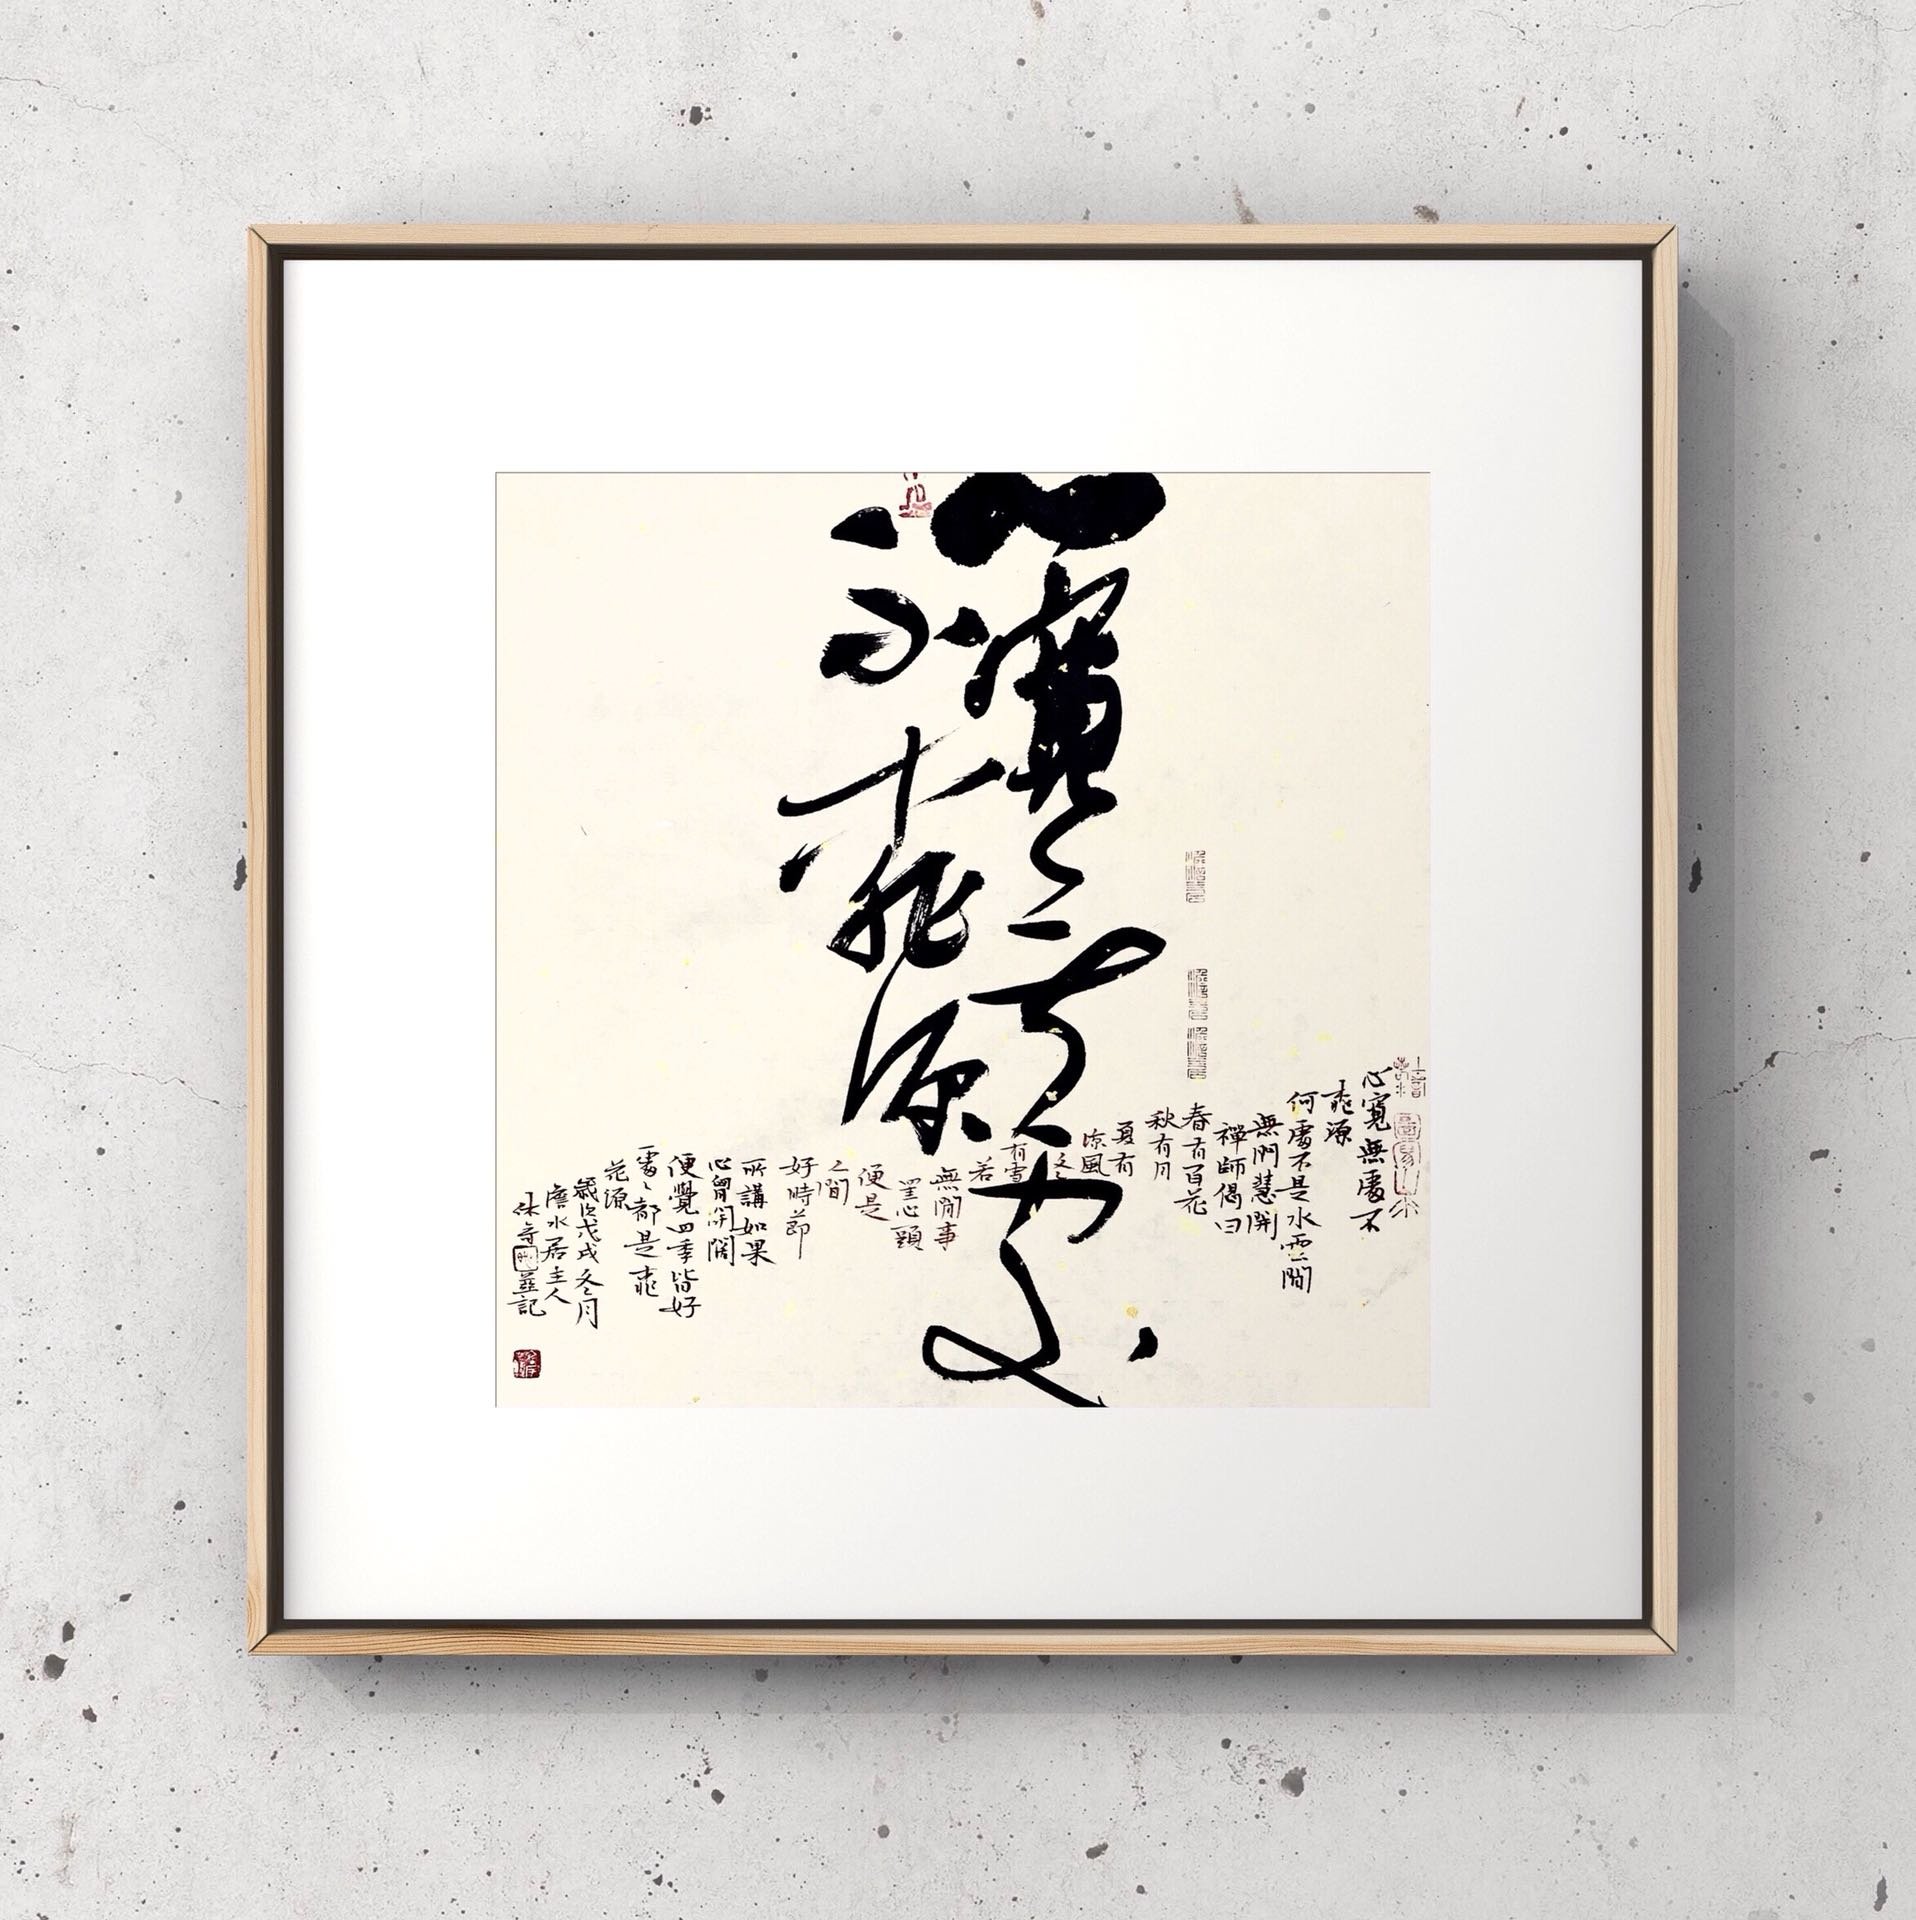 心寬無處
不桃源
心寬無處不
桃源
何處不是水雲間
無門慧開
禪師偈曰
春有百花
秋有月
夏有
涼風
冬
有雪
若
無閒事
罣心頭
便是
人間
好時節
所講如果
心胸開闊
便覺四季皆好
處〻都是桃
花源
歲次戊戌冬月
水居主人
並記